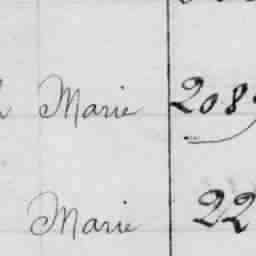 Marie 208
Marie 22